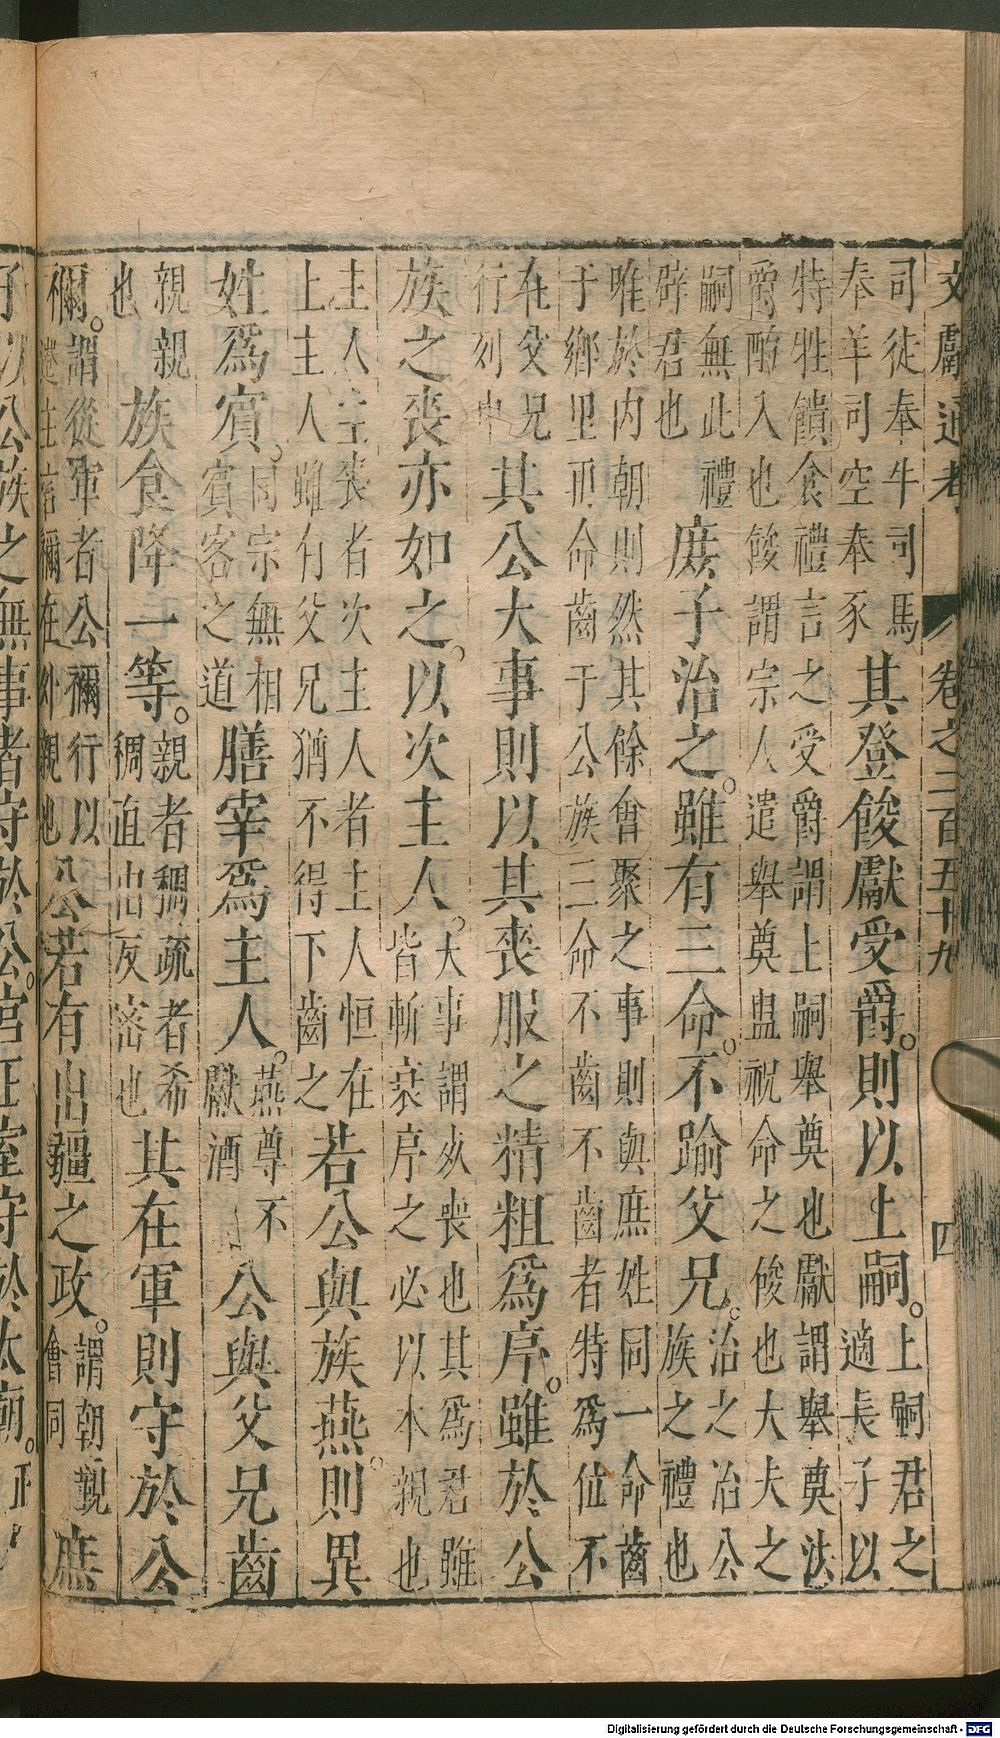 文獻通考 卷之二百五十九 四
司徒奉牛司馬
奉羊司空奉豕
其登餕獻受爵。則以上嗣。
上嗣君之
適長子以
特牲饋食禮言之受爵謂上嗣舉奠也獻謂舉奠洗
爵酌入也餕謂宗人遣舉奠盥祝命之餕也大夫之
嗣無此禮
辟君也
庶子治之。雖有三命。不踰父兄。
治之治公
族之禮也
唯於内朝則然其餘會聚之事則與庶姓同一命齒
于鄉里再命齒于公族三命不齒不齒者特爲位不
在父兄
行列中
其公大事則以其喪服之精粗爲序。雖於公
族之喪亦如之。以次主人。
大事謂死喪也其爲君雖
皆斬衰序之必以本親也
主人主喪者次主人者主人恒在
上主人雖有父兄猶不得下齒之
若公與族燕。則異
姓爲賓。
同宗無相
賓客之道
膳宰爲主人。
燕尊不
獻酒
公與父兄齒
親親
也
族食降一等。
親者稠疏者希
稠直出反密也
其在軍則守於公
禰。
謂從軍者公禰行以
遷主言禰在外親也
公若有出疆之政。
謂朝覲
會同
庶
子以公族之無事者守於公。宮正室守於太廟。
正